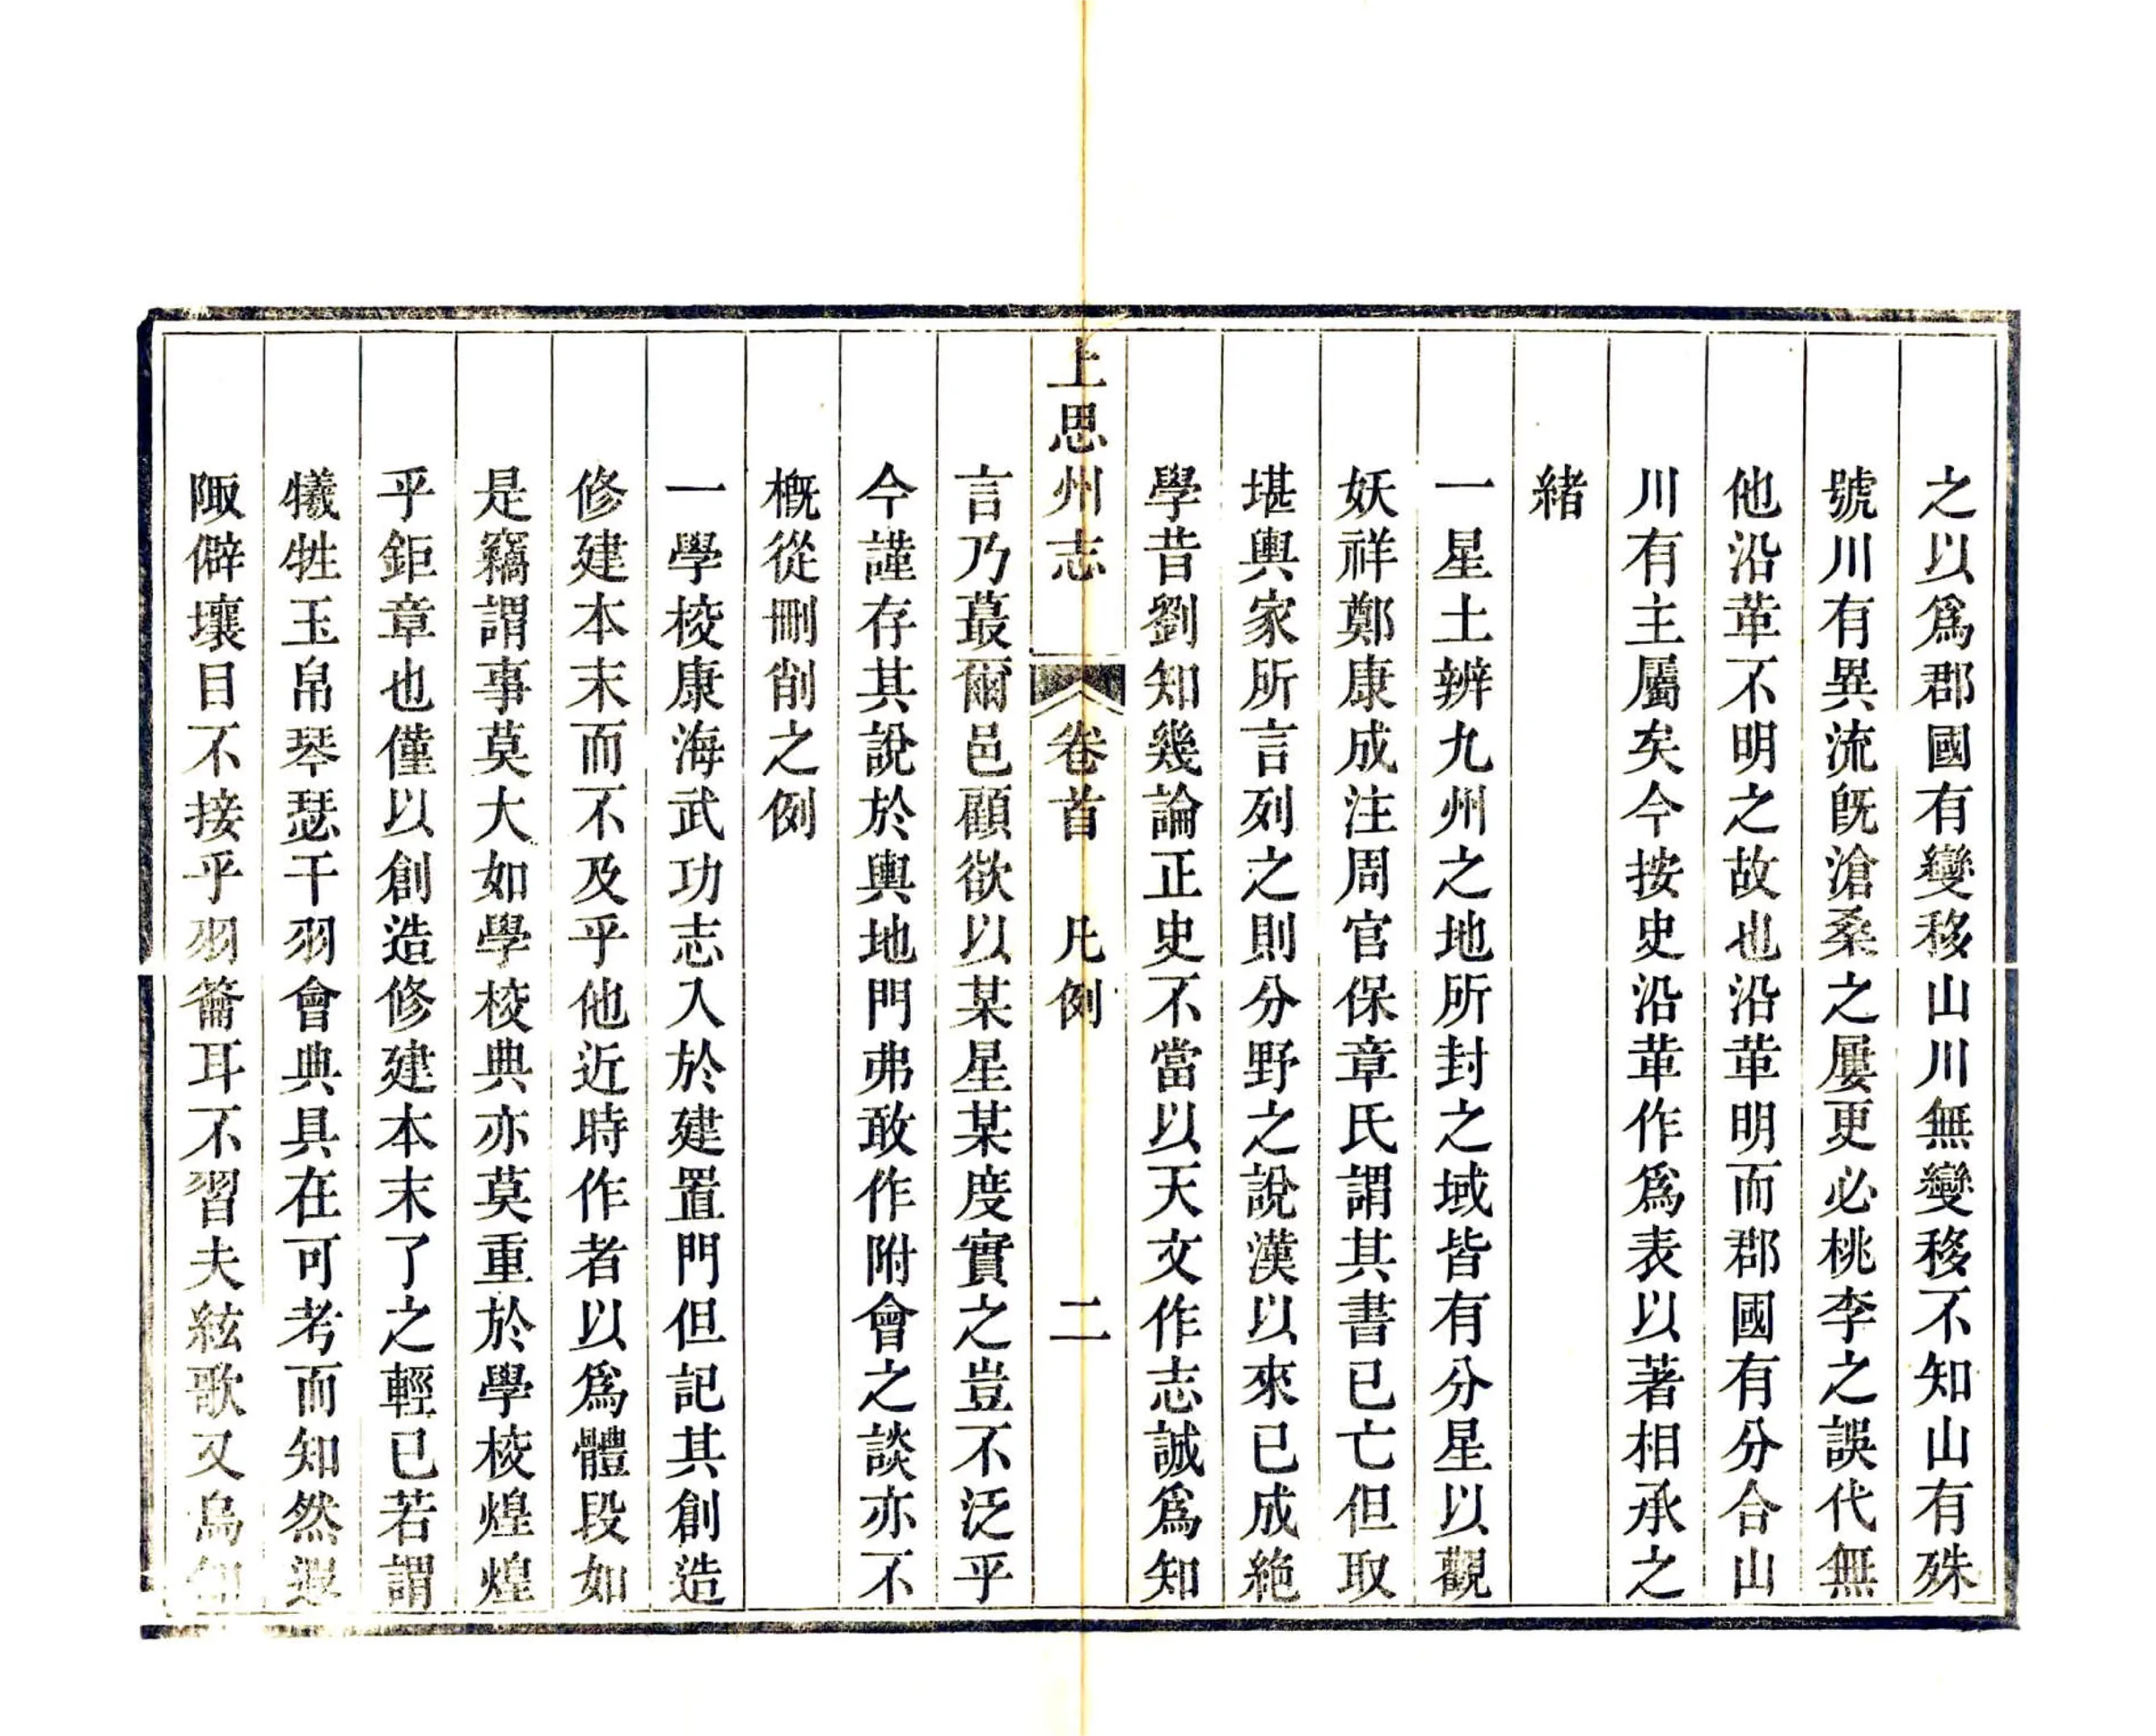 之以爲郡國有變移山川無變移不知山有殊
號川有異流旣滄桑之屢更必桃李之誤代無
他沿革不明之故也沿革明而郡國有分合山
川有主屬矣今按史沿革作爲表以著相承之
緒
一星土辨九州之地所封之域皆有分星以觀
妖祥鄭康成注周官保章氏謂其書已亡但取
堪輿家所言列之則分野之說漢以來已成絶
學昔劉知幾論正史不當以天文作志誠爲知
上思州志 卷首 凡例 二
言乃蕞爾邑顧欲以某星某度實之豈不泛乎
今謹存其說於輿地門弗敢作附會之談亦不
概從刪削之例
一學校康海武功志入於建置門但記其創造
修建本末而不及乎他近時作者以爲體段如
是竊謂事莫大如學校典亦莫重於學校煌煌
乎鉅章也僅以創造修建本末了之輕已若謂
犧牲玉帛琴瑟干羽會典具在可考而知然遐
陬僻壤目不接乎羽籥耳不習夫絃歌又烏